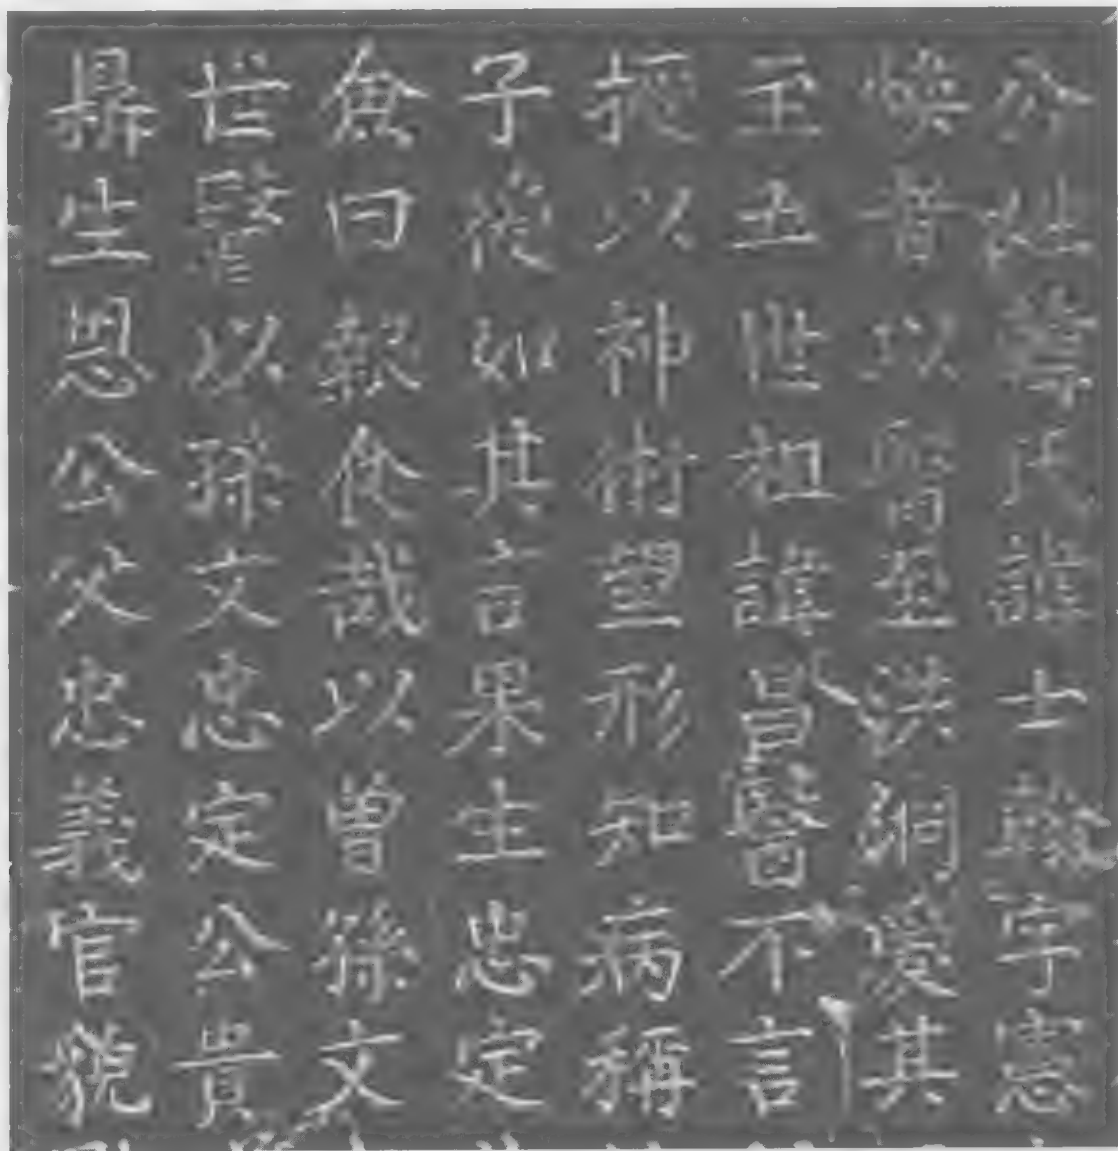 公姓氏諱士翰字憲
昔以醫至洪洞愛其
五世祖諱昌醫不言
授以神術望形知病稱
子後如其言果生忠定
僉曰報食哉以曾孫文
世醫以孫文忠定公貴
生恩公父忠義官貌